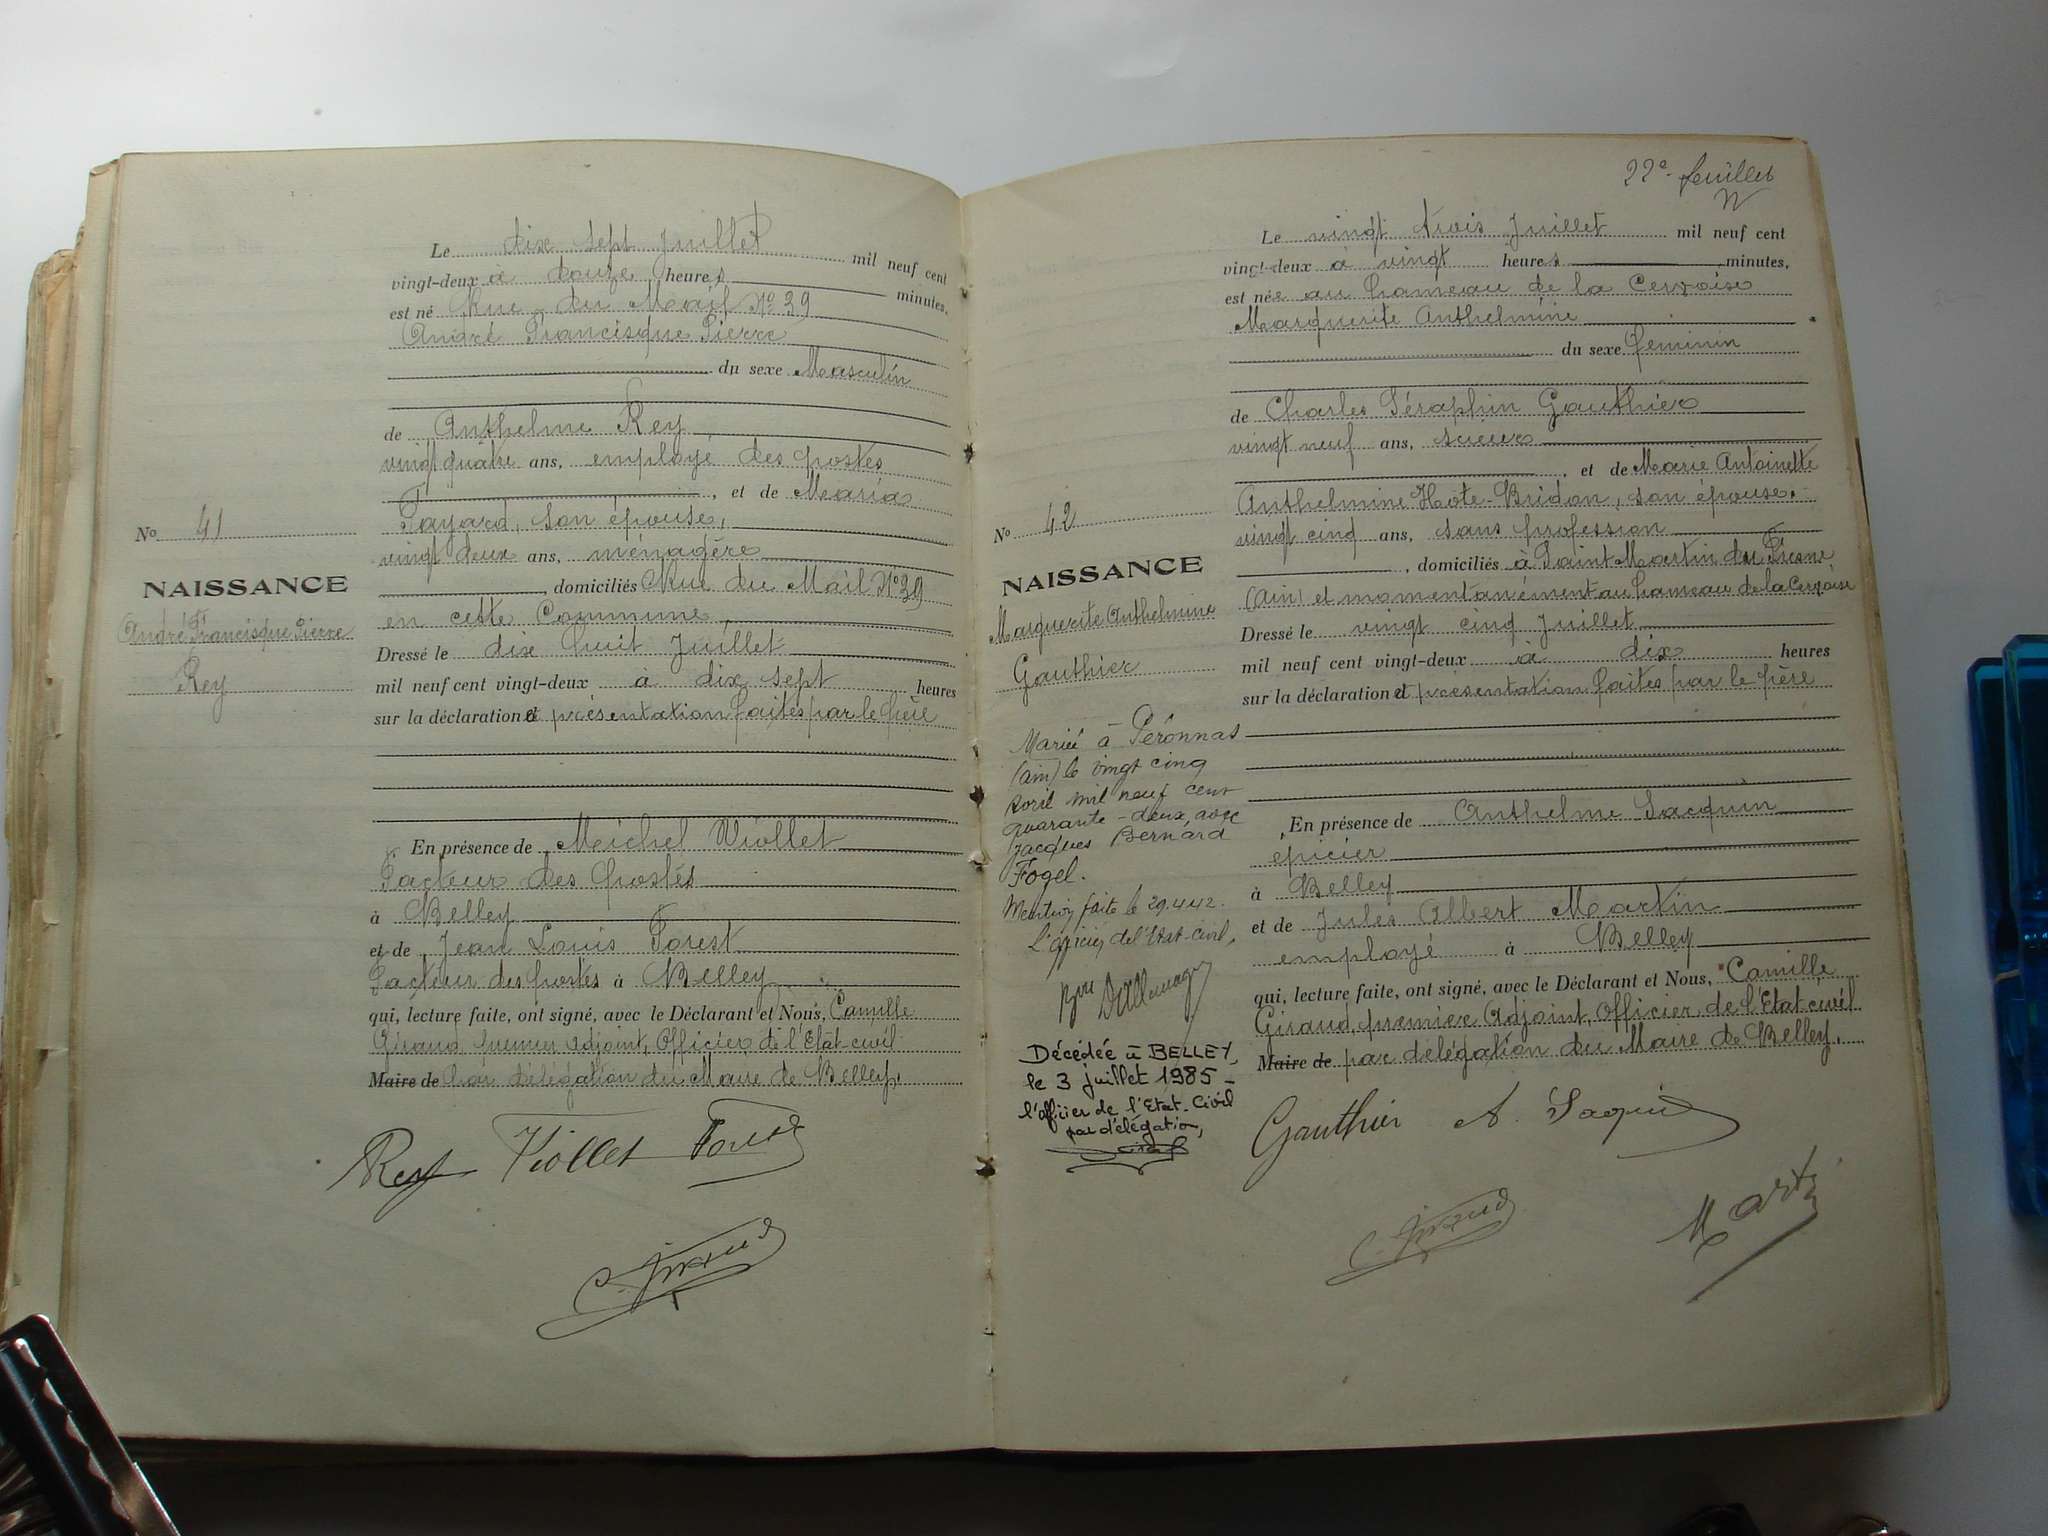 Le dix sept Juillet mil neuf cent
vingt-deux à douze heures minutes,
est né Rue du Mail N° 39
André Francisque Pierre
du sexe Masculin
de Anthelme Rey
vingt quatre ans, employé des postes
, et de Maria
Payard, son épouse,
vingt deux ans, ménagère
, domiciliés Rue du Mail N° 39
en cette Commune,
Dressé le dix huit Juillet
mil neuf cent vingt-deux à dix sept heures
sur la déclaration et présentation faites par le père
N° 41
NAISSANCE
André Francisque Pierre
Rey
En présence de Michel Viollet
Facteur des postes
à Belley
et de Jean Louis Forest
Facteur des postes à Belley
qui, lecture faite, ont signé, avec le Déclarant et Nous, Camille
Giraud premier Adjoint, Officier de l'Etat-civil
Maire de par délégation du Maire de Belley.
Rey Viollet Forest
C. Giraud
22e feuillet
Le vingt trois Juillet mil neuf cent
vingt-deux à vingt heures minutes,
est née au hameau de la Cerzoise
Marguerite Anthelmine
du sexe feminin
de Charles Séraphin Gauthier
vingt neuf ans, scieur
, et de Marie Antoinette
Anthelmine Hote-Bridon, son épouse,
vingt cinq ans, sans profession
, domiciliés à Saint Martin du Fresne
(Ain) et momentanément au hameau de la Cerzoise
Dressé le vingt cinq Juillet
mil neuf cent vingt-deux à dix heures
sur la déclaration et présentation faites par le père
N° 42
NAISSANCE
Marguerite Anthelmine
Gauthier
Mariée à Péronnas
(Ain) le vingt cinq
avril mil neuf cent
quarante-deux, avec
Jacques Bernard
Fogel.
Mention faite le 29.4.42.
L'officier de l'Etat-civil,
Décédée à BELLEY
le 3 juillet 1985 -
l'officier de l'Etat-Civil
par délégation,
En présence de Anthelme Jacquin
épicier
à Belley
et de Jules Albert Martin
employé à Belley
qui, lecture faite, ont signé, avec le Déclarant et Nous, Camille
Giraud, premier Adjoint, Officier de l'Etat-civil
Maire de par délégation du Maire de Belley.
Gauthier A. Jaquin
C. Giraud
Martin